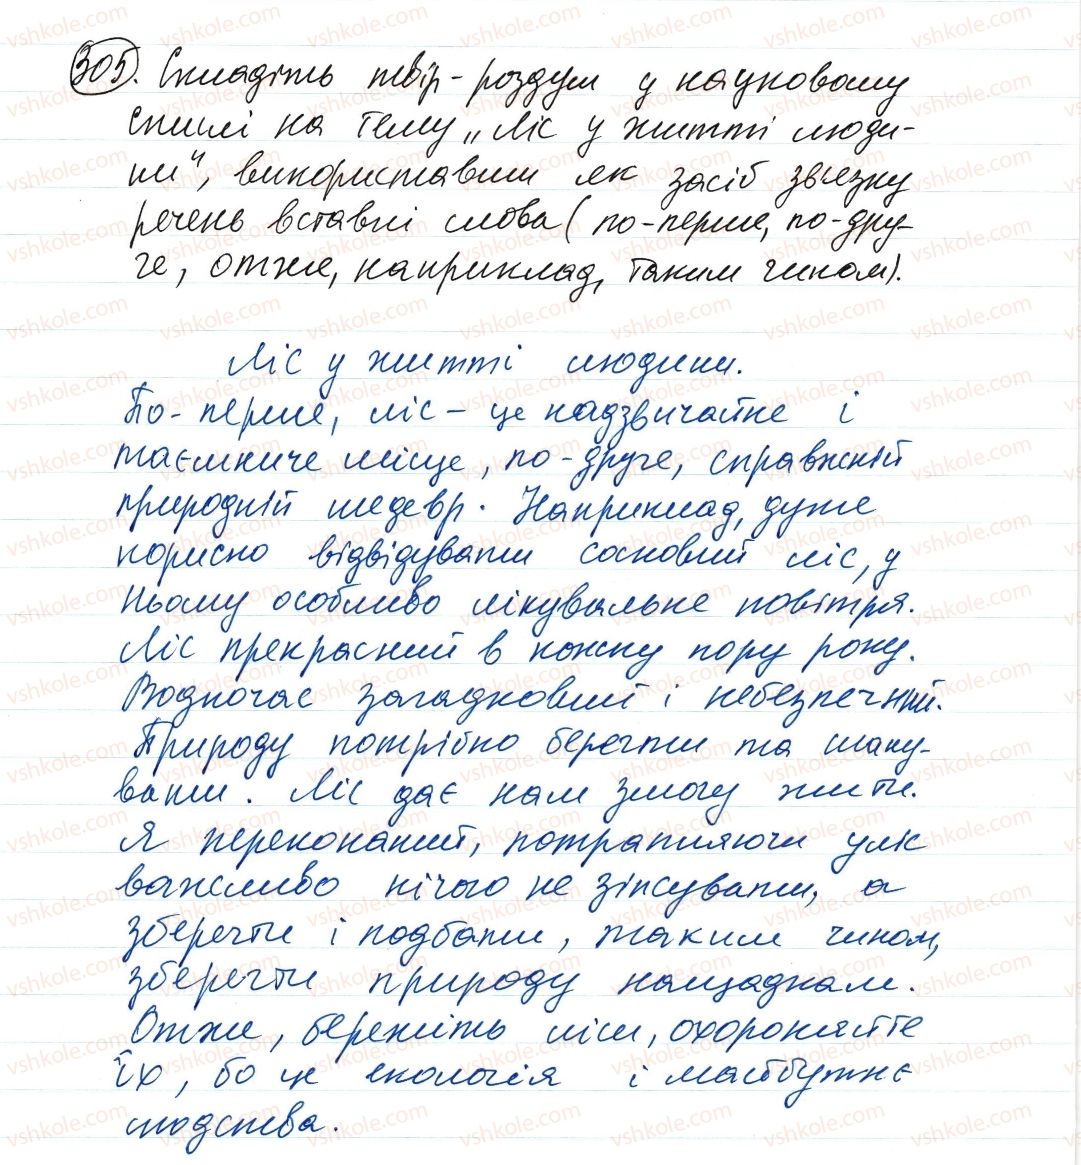 305. Складіть твір-роздум у науковому
стилі на тему „Ліс у житті люди-
ни", використавши як засіб зв'язку
речень вставні слова (по-перше, по-дру-
ге, отже, наприклад, таким чином).
Ліс у житті людини.
По-перше, ліс – це надзвичайне і
таємниче місце, по-друге, справжній
природній шедевр. Наприклад, дуже
корисно відвідувати сосновий ліс, у
ньому особливо лікувальне повітря.
Ліс прекрасний в кожну пору року.
Водночас загадковий і небезпечний.
Природу потрібно берегти та шану-
вати. Ліс дає нам змогу жити.
Я переконаний, потрапляючи у ліс
важливо нічого не зіпсувати, а
зберегти і подбати, таким чином,
зберегти природу нащадкам.
Отже, бережіть ліси, охороняйте
їх, бо це екологія і майбутнє
людства.
vshkole.com